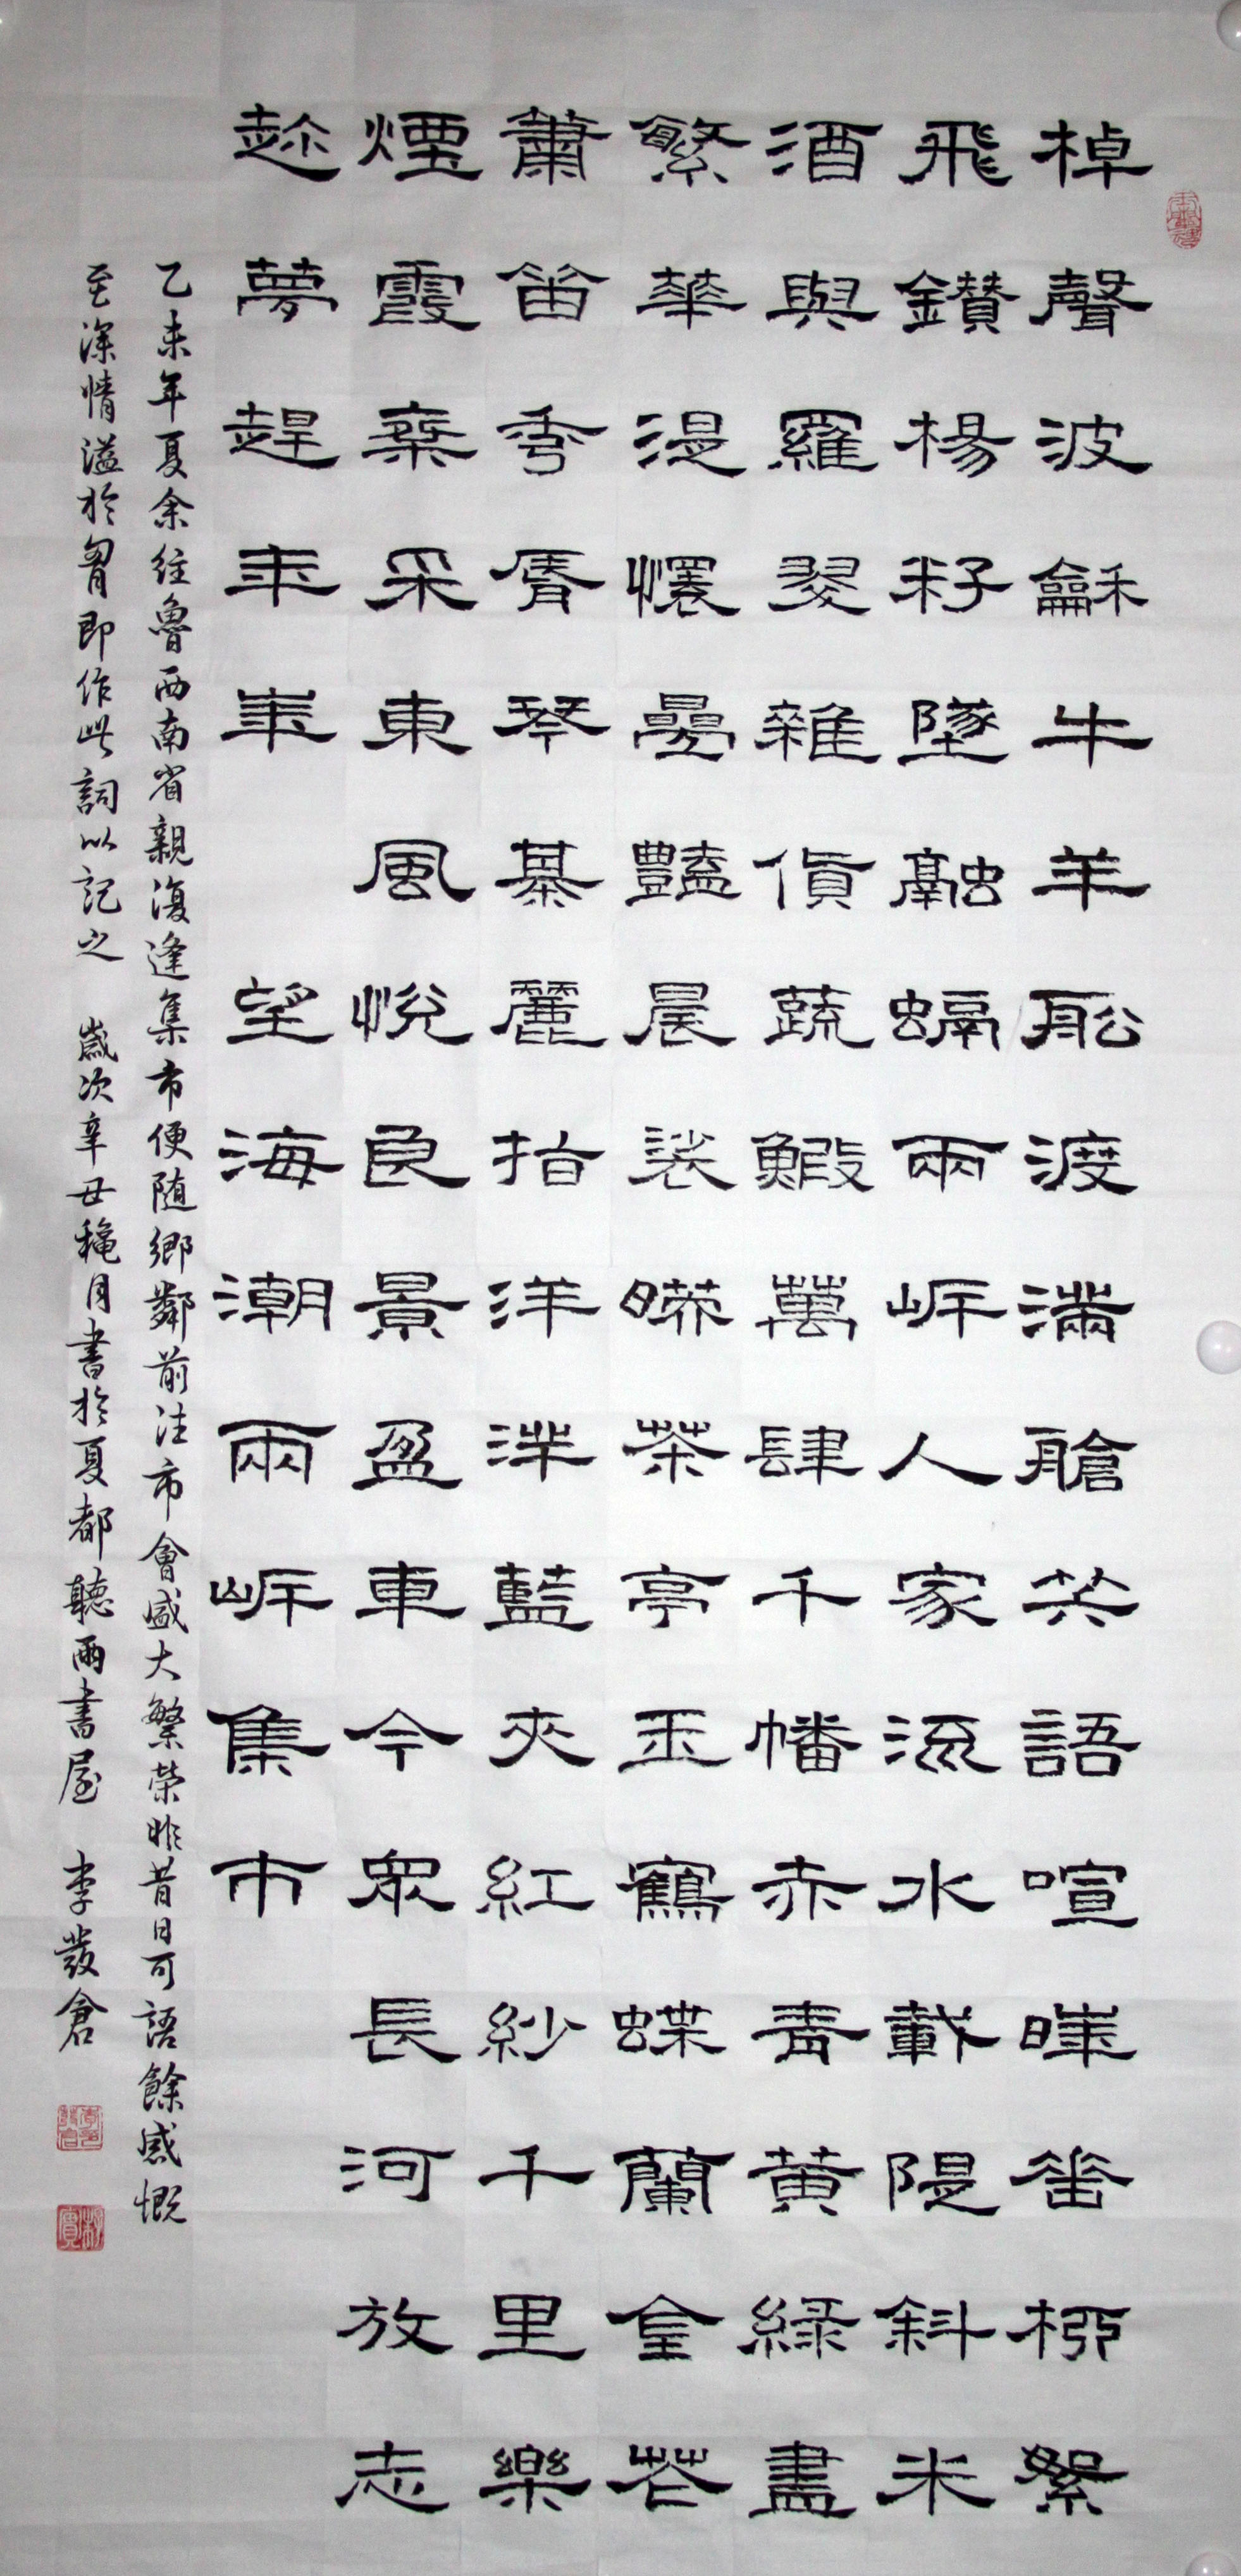 棹聲波龢牛羊舩渡滿艙笑語喧嘩岸柳絮
飛鑽楊籽墜融蝸兩岍人家流水載隄斜米
酒與羅翠雜貨蔬鰕萬肆千幡赤青黄緑盡
繁華漫懷曡豔晨裳暎茶亭玉鶴蝶蘭皇花
簫笛秀脣琴綦麗指洋洋藍夾紅紗千里樂
煙霞棄采東風悅良景盈車今眾長河放志
趂夢趕年年 望海潮兩岍集市
乙未年夏余往魯西南省親復逢集市便随鄉鄰前往市會盛大繁榮昨昔日可語餘感慨
至深情溢於胷即作此詞以記之 歲次辛丑穐月書於夏都聽雨書屋 李發倉